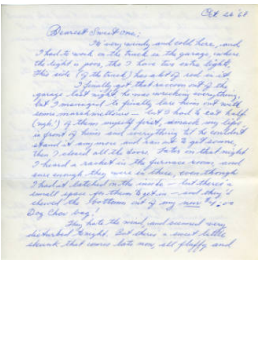 Oct 22 '68
Dearest Sweet one:
It's very windy and cold here, and
I had to work on the truck in the garage, where
the light is poor, tho I have two extra lights,
This side of the truck has a lot of rust in it
I finally got that raccoon out of the
garage last night he was wrecking everything,
but I managed to finally lure him out with
some marshmallows — but I had to eat half
(ugh!) of them myself first, smack my lips
in front of him and everything till he couldn't
stand it any more and ran out to get some,
then I closed all the doors. Later on that night
I heard a racket in the furnace room, and
sure enough they were in there, even though
I had it latched on the inside — but there's a
small space for them to get in — and they'd
chewed the bottom out of my new
Dog Chow bag!
They hate the wind, and seemed very
disturbed tonight. But there's a sweet little
skunk that comes late now, all fluffy and